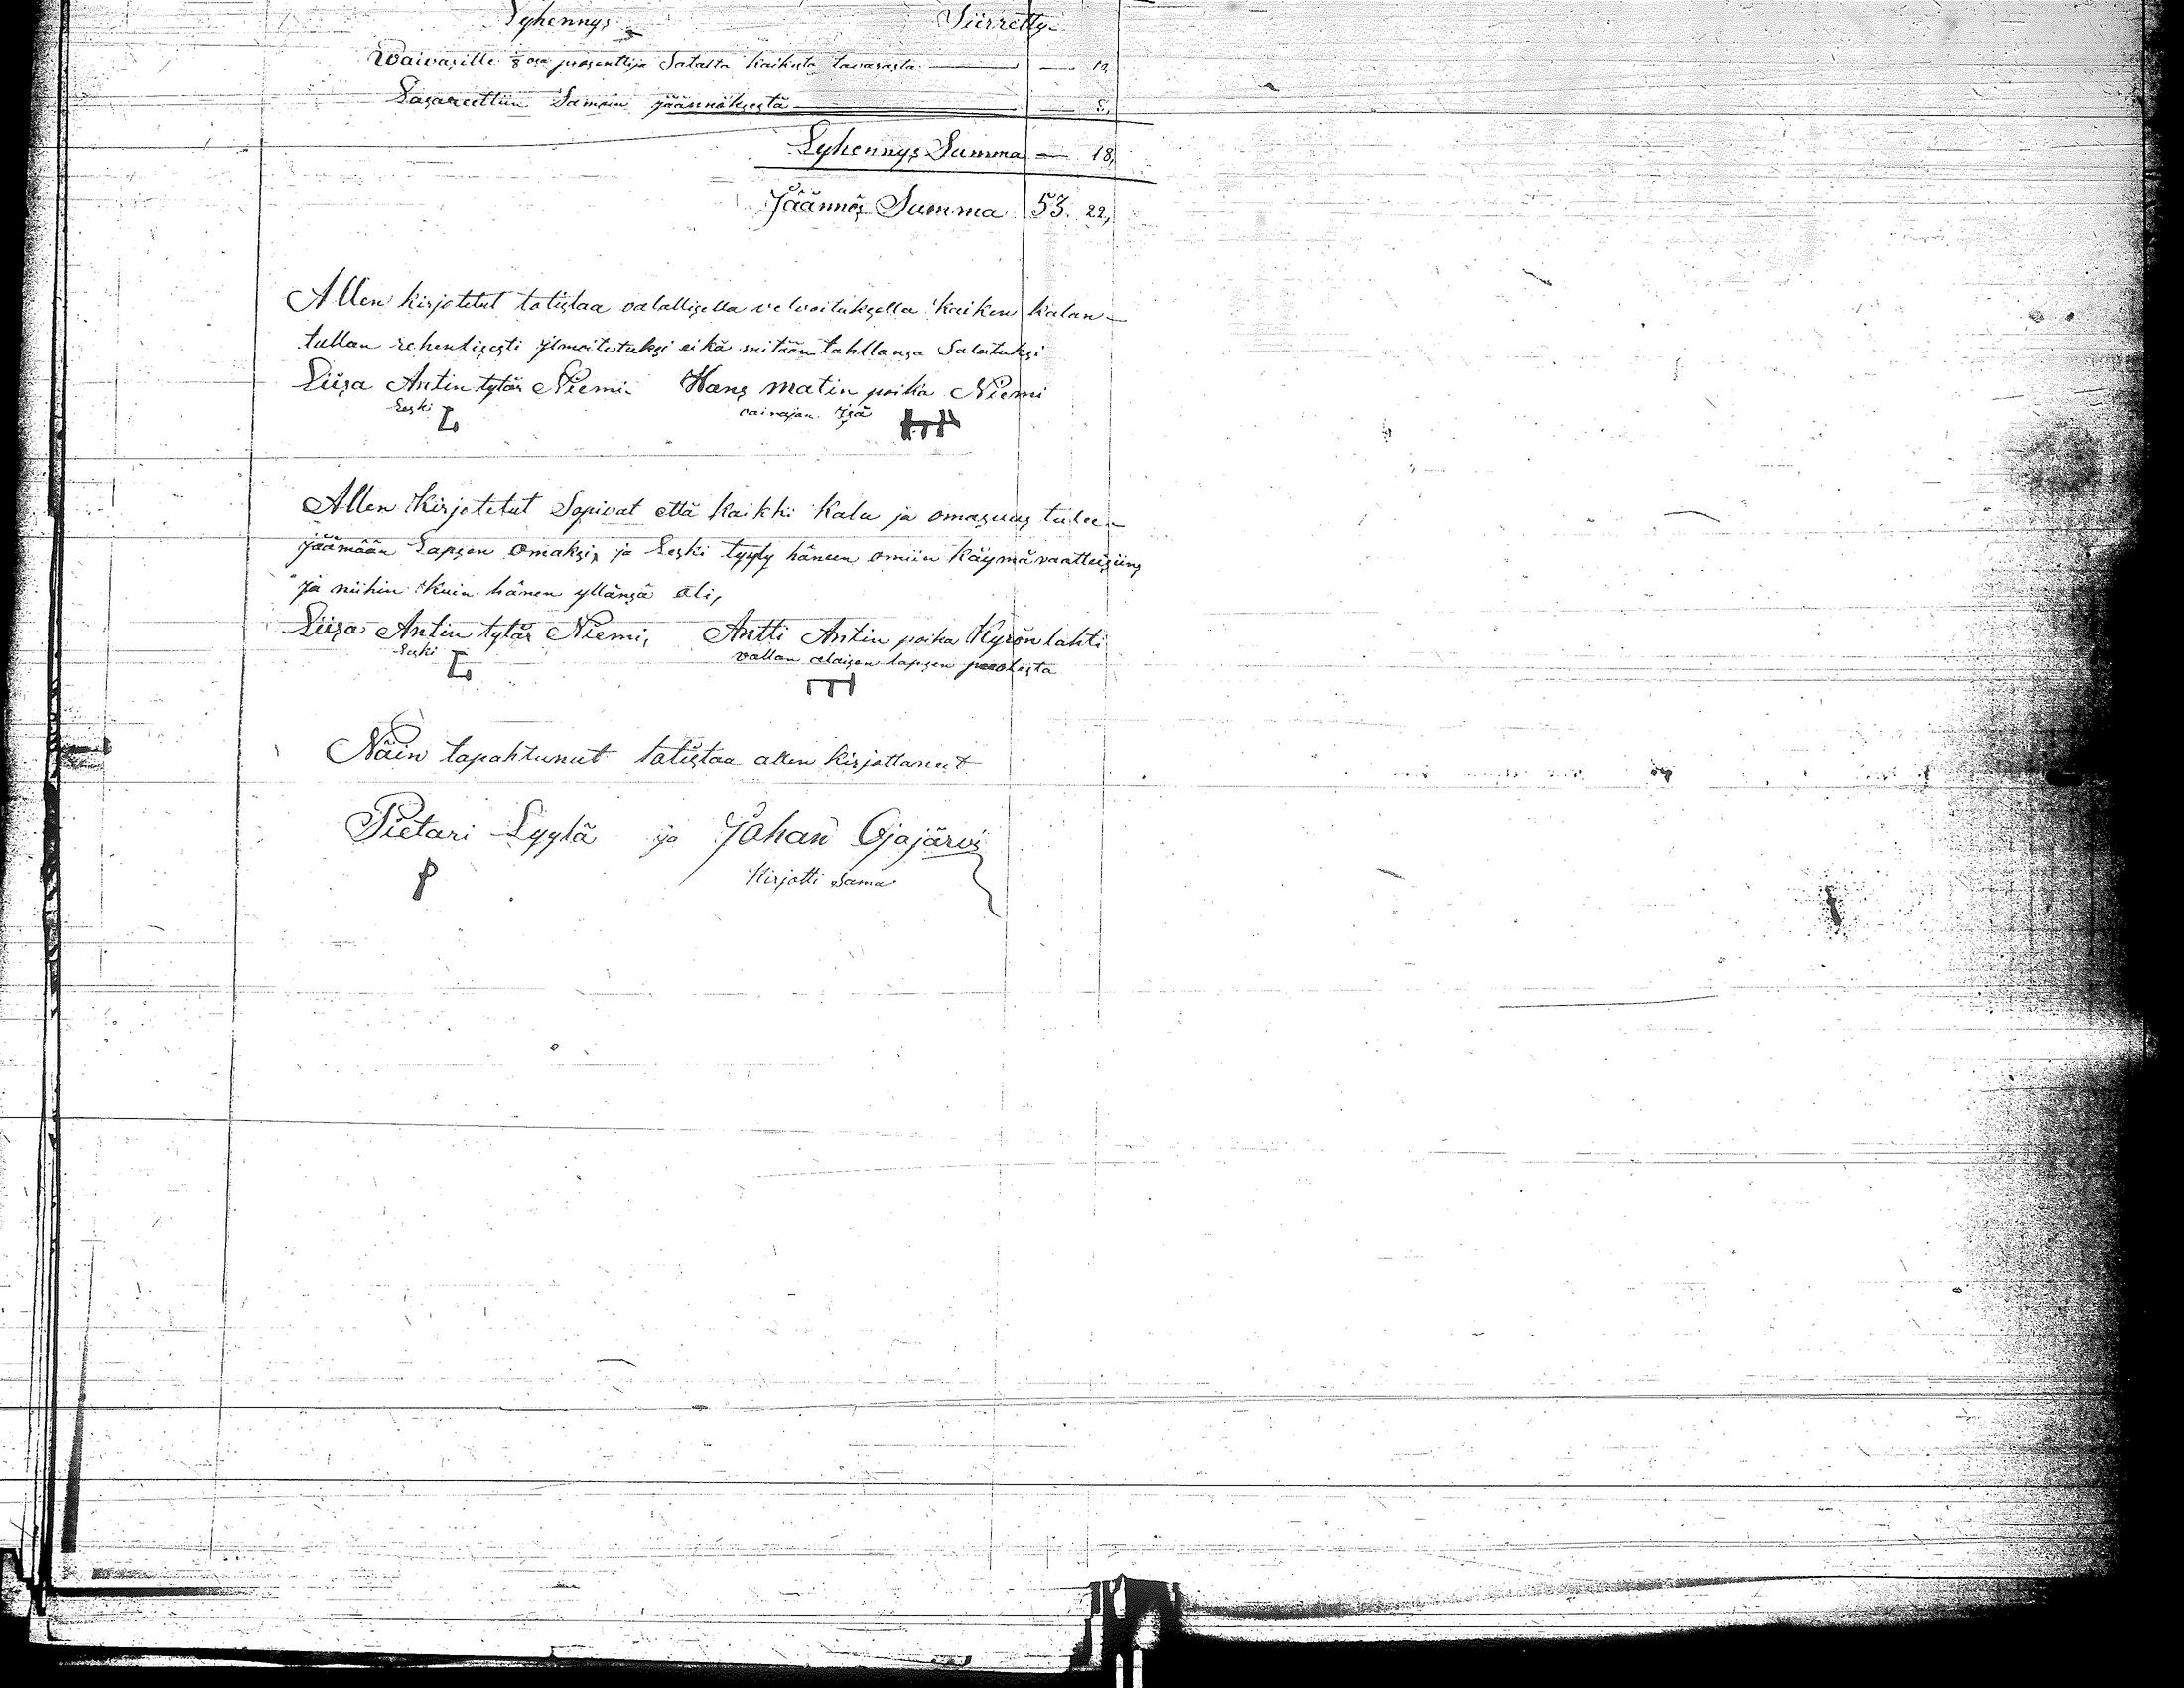 Lyhennys Siirretty
Waivasille 1/8 osa prosenttija Satalta kaikesta tavarasta — — 10,
Lasarettiin Samoin jäännöksestä — — 8,
Lyhennys Summa — 18,
Jäännös Summa 53. 22,
Allen kirjotetut totistaa valallisella velvoituksella kaiken kalun
tullan rehentisesti ylmoitetuksi eikä mitään tahllansa Salatuksi
Liisa Antin tytär Niemi Hans Matin poika Niemi
Leski L vainajan Isä
Allen kirjotetut Sopivat että kaikki kalu ja omasuus tulee
jäämään Lapsen omaksi, ja Leski tyyty häneen omiin käymävaatteisiins
ja niihin kuin hänen yllänsä oli,
Liisa Antin tytär Niemi, Antti Antin poika Kyrönlahti
Leski L vallan alaisen lapsen puolesta
Näin tapahtunut totistaa allen kirjottaneet
Pietari Lyylä ja Johan Ojajärvi
P Kirjotti Sama